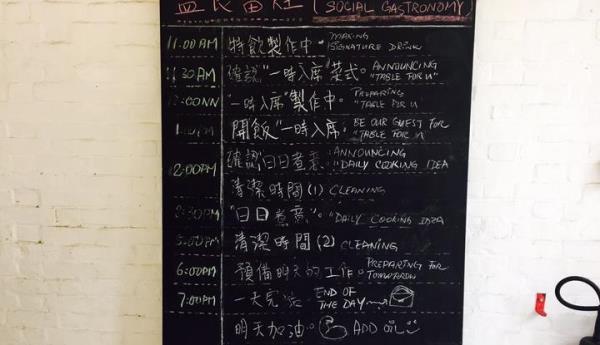 (SOCIAL GASTRONOMY)
11:00AM 特飲製作中。MAKING SIGNATURE DRINK
11:30AM 確認"一時入席"菜式。ANNOUNCING "TABLE FOR U"
12:00NN "一時入席"製作中。PREPARING "TABLE FOR U"
開飯"一時入席。BE OUR GUEST FOR "TABLE FOR U"
2:00PM 確認"日日煮意。ANNOUNCING "DAILY COOKING IDEA
清潔時間(1) CLEANING
"日日煮意"。"DAILY COOKING IDEA
5:00PM 清潔時間(2) CLEANING
6:00PM 預備明天的工作。PREPARING FOR TOMORROW
7:00PM 一天完 END OF THE DAY
明天加油。ADD OIL